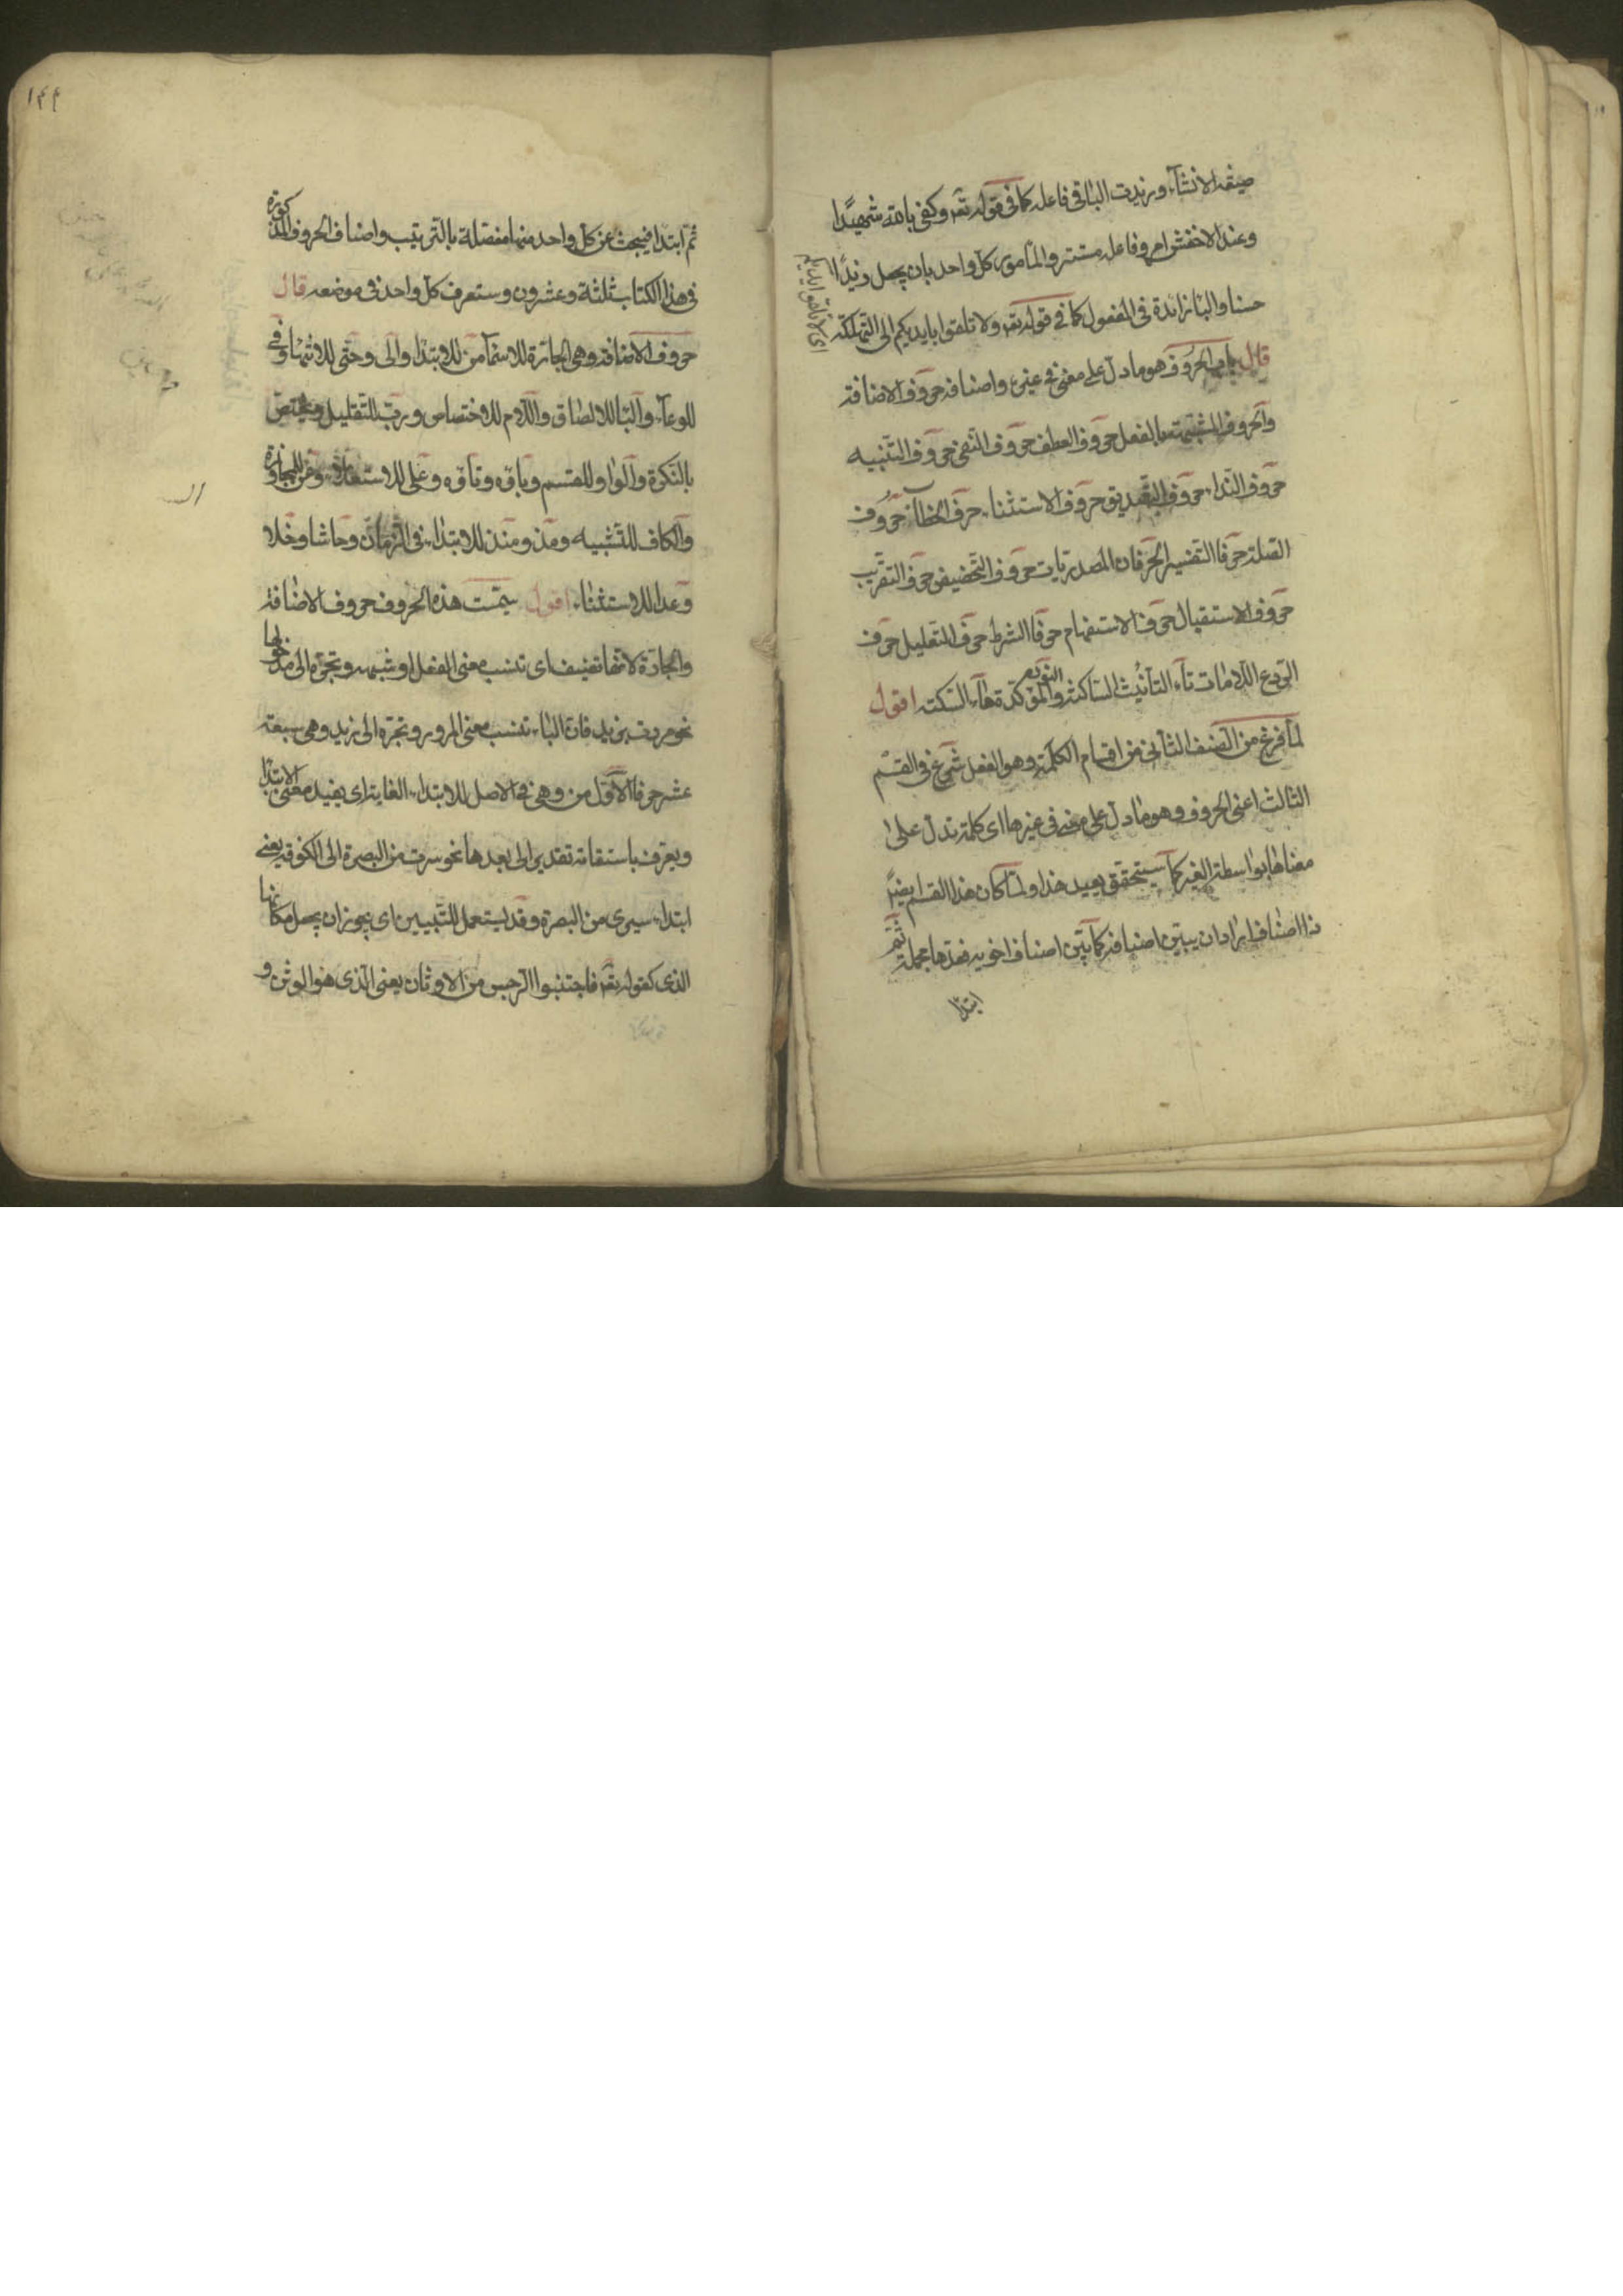 صيغة الانشاء وزيدت الباء في فاعله كما في قوله تعه وكفى بالله شهيدا
وعند الاخفش امر وفاعله مستتر والمأمور كل واحد بان يجعل زيدا
حسنا والباء زائدة في المفعول كما في قوله تعه ولا تلقوا بايديكم الى التهلكة
اى لا تلقوا ايديكم
قال باب الحروف هو ما دل على معنى في غيره واصنافه حروف الاضافة
والحروف المشبهة بالفعل حروف العطف حروف النفي حروف التنبيه
حروف النداء حروف التصديق حروف الاستثناء حرفا الخطاب حروف
الصلة حرفا التفسير الحرفان المصدريات حروف التحضيض حرف التقريب
حروف الاستقبال حرفا الاستفهام حرفا الشرط حرف التعليل حرف
الردع اللامات تاء التأنيث الساكنة والنون المؤكدة هاء السكتة اقول
لما فرغ من الصنف الثاني من اقسام الكلمة وهو الفعل شرع في القسم
الثالث اعنى الحروف وهو ما دل على معنى في غيرها اى كلمة تدل على
معناها بواسطة الغير كما سيتحقق بعيد هذا ولما كان هذا القسم ايضا
ذا اصناف اراد ان يبين اصنافه كما بين اصناف اخويه فعدها مجملة ثم
ابتدا
١٤٤
ثم ابتدا فيبحث عن كل واحد منها مفصلة بالترتيب واصناف الحروف المذكورة
في هذا الكتاب ثلثة وعشرون وستعرف كل واحد في موضعه قال
حروف الاضافة وهي الجارة للاسماء من للابتدا والى وحتى للانتهاء وفي
للوعاء والباء للالصاق واللام للاختصاص ورب للتقليل ويختص
بالنكرة والواو للقسم وباؤه وتاؤه وعلى للاستعلاء وعن للمجاوزة
والكاف للتشبيه ومذ ومنذ للابتداء في الزمان وحاشا وخلا
وعدا للاستثناء اقول سميت هذه الحروف حروف الاضافة
والجارة لانها تضيف اى تنسب معنى الفعل او شبهه وتجره الى مدخولها
نحو مررت بزيد فان الباء تنسب معنى المرور وتجره الى زيد وهي سبعة
عشر حرفا الاول من وهي في الاصل لابتداء الغاية اى يفيد معنى الابتدا
ويعرف باستقامة تقدير الى بعدها نحو سرت من البصرة الى الكوفة يعنى
ابتداء سيرى من البصرة وقد يستعمل للتبيين اى يجوز ان يجعل مكانها
الذى كقوله تعه فاجتنبوا الرجس من الاوثان يعنى الذى هو الوثن و